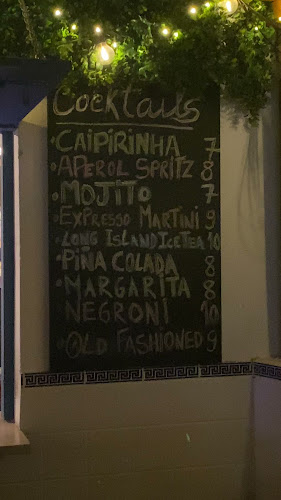 Cocktails
• CAIPIRINHA 7
• APEROL SPRITZ 8
• MOJITO 7
• EXPRESSO MARTINI 9
• LONG ISLAND ICE TEA 10
• PIÑA COLADA 8
• MARGARITA 8
• NEGRONI 10
• OLD FASHIONED 9